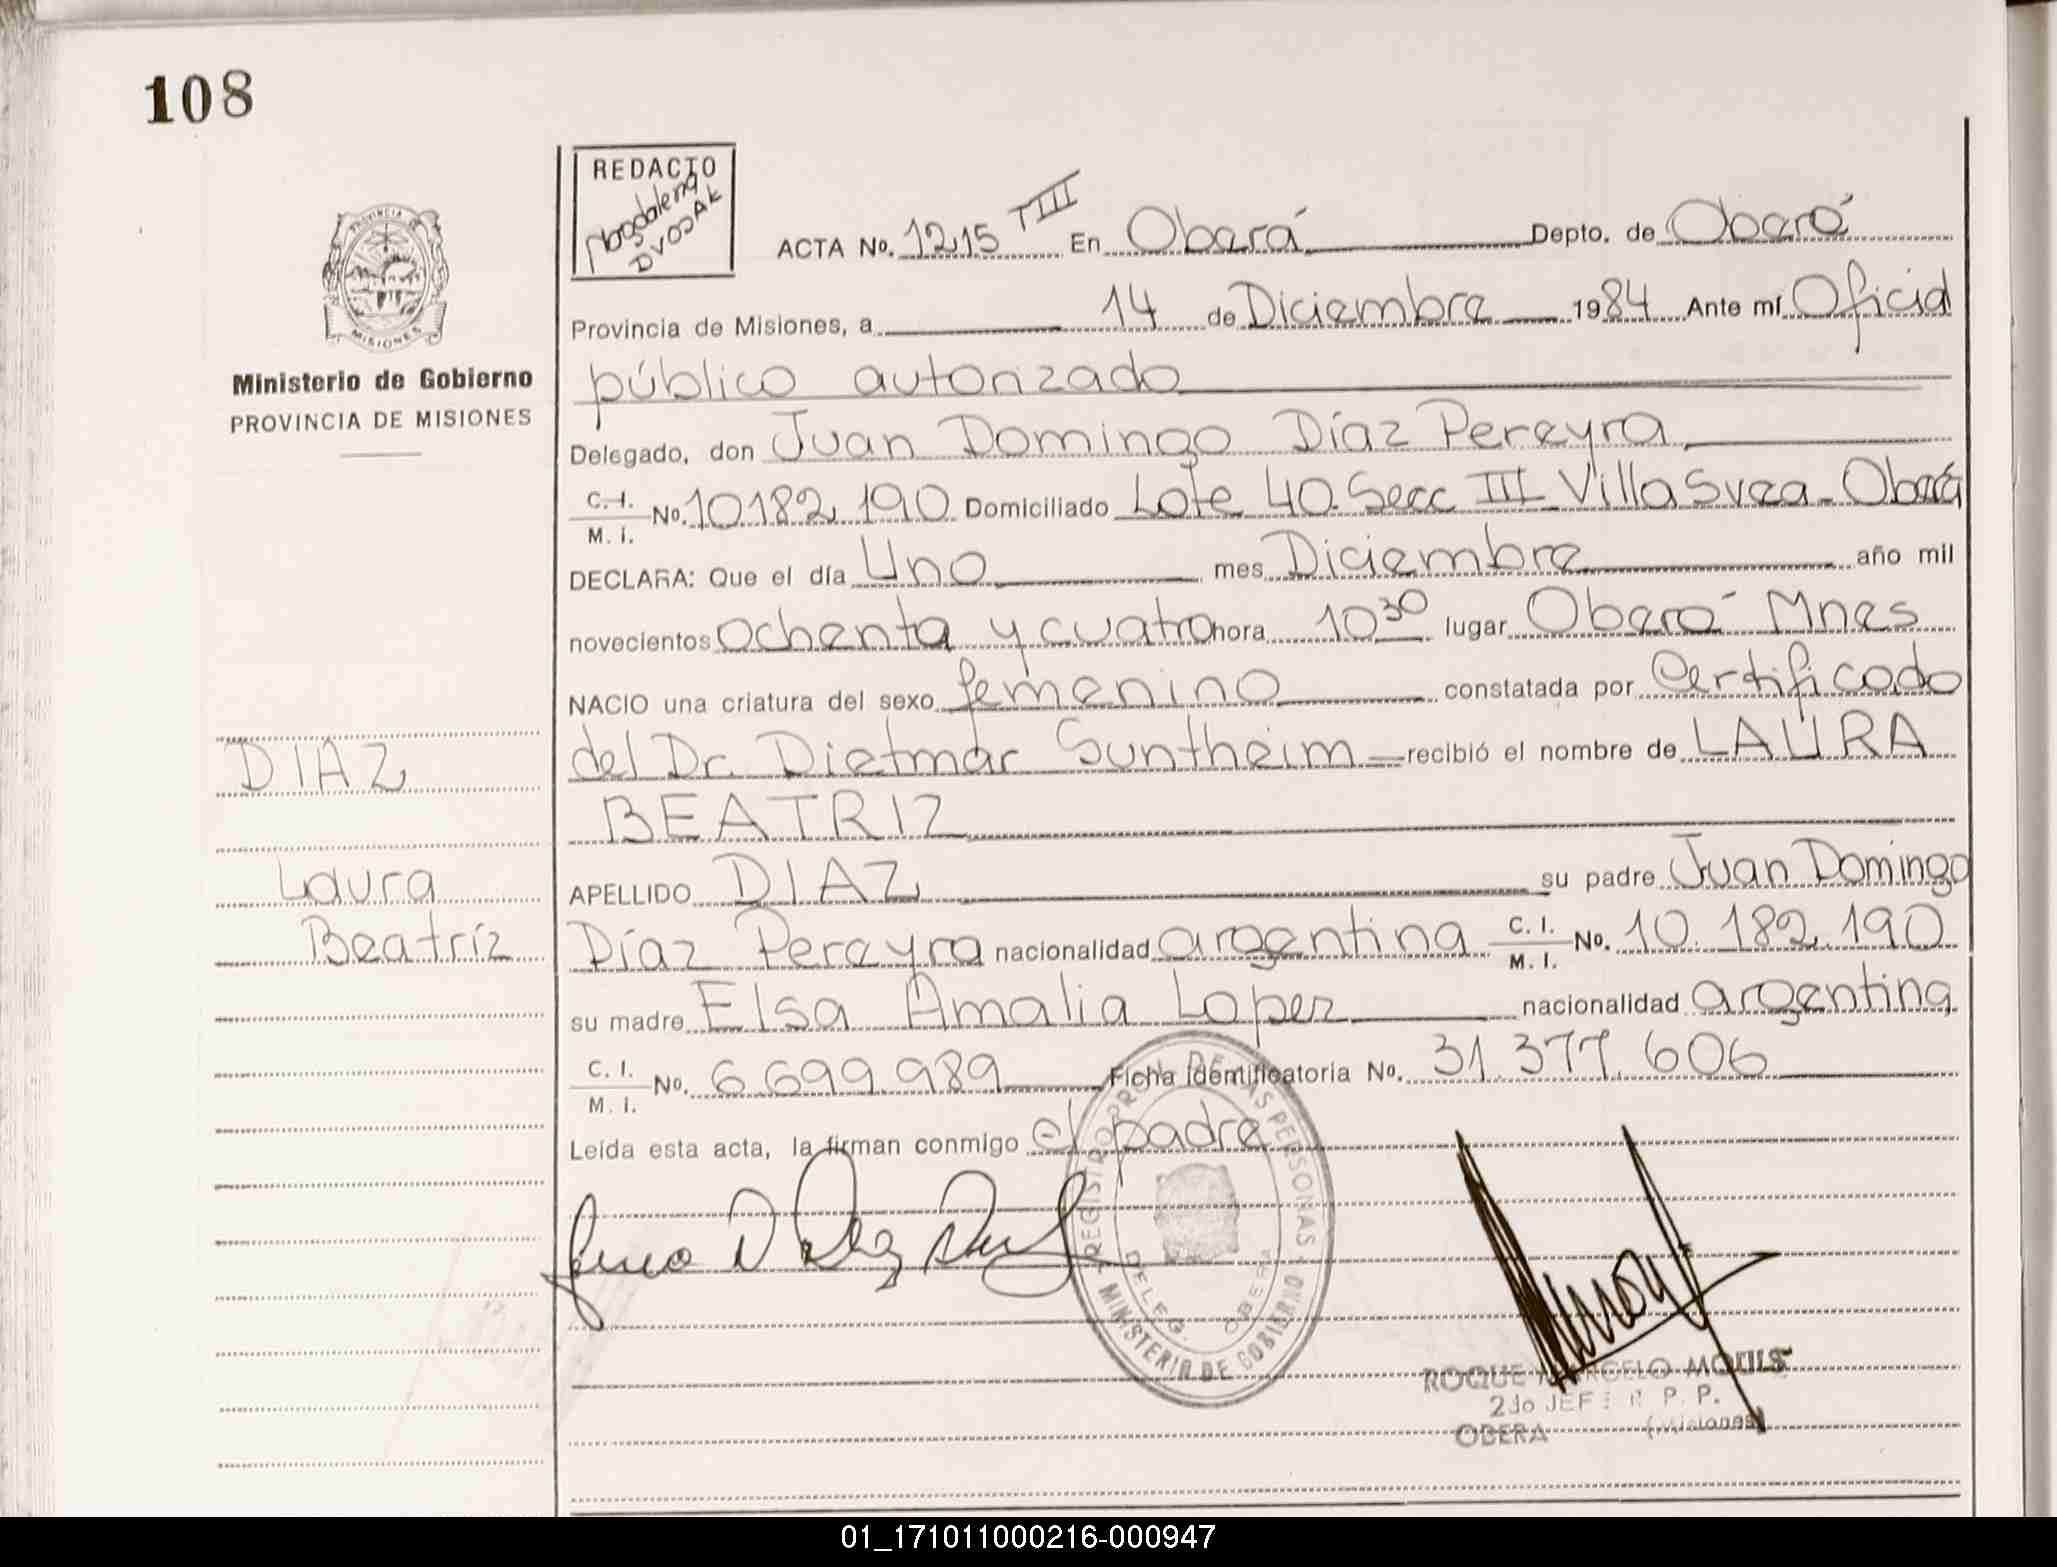 108
REDACTO
Magdalena
DVOJAK
PROVINCIA
MISIONES
Ministerio de Gobierno
PROVINCIA DE MISIONES
ACTA No. 1215 TIII En Oberá Depto. de Oberá
Provincia de Misiones, a 14 de Diciembre 1984 Ante mí Oficial
público autorizado
Delegado, don Juan Domingo Díaz Pereyra
C.I. M.I. No. 10182.190 Domiciliado Lote 40 Secc III Villa Svea - Oberá
DECLARA: Que el día Uno mes Diciembre año mil
novecientos ochenta y cuatro hora 10 30 lugar Oberá Mnes
NACIO una criatura del sexo femenino constatada por Certificado
del Dr. Dietmar Suntheim recibió el nombre de LAURA
BEATRIZ
APELLIDO DIAZ su padre Juan Domingo
Díaz Pereyra nacionalidad argentina C.I. M.I. No. 10.182.190
su madre Elsa Amalia Lopez nacionalidad argentina
C.I. M.I. No. 6.699.989 Ficha Identificatoria No. 31.377.606
Leída esta acta, la firman conmigo el padre
DIAZ
Laura
Beatríz
REGISTRO PROV. DE LAS PERSONAS
DELEG. OBERA
MINISTERIO DE GOBIERNO
ROQUE
2do JEFE R. P. P.
OBERA (Misiones)
01_171011000216-000947